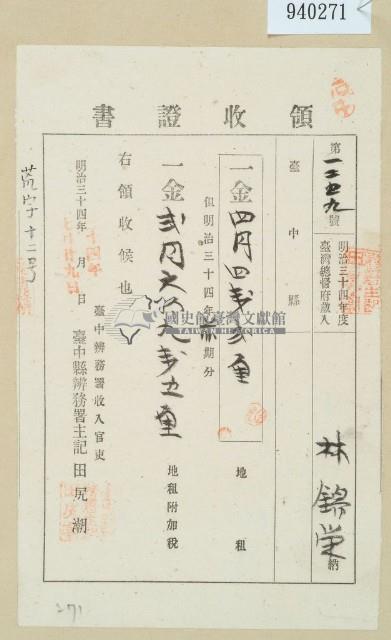 940271
領收證書
第一二五九號
明治三十四年度
臺灣總督府歲入
林錦榮 納
臺中縣
一金四円四
地租
但明治三十四年 期分
一金弍円六
地租附加稅
右領收候也
臺中辨務署收入官吏
明治三十四年 月 日
臺中縣辨務署主記田尻潮
荒字十二号
國史館臺灣文獻館
TAIWAN HISTORICA
271